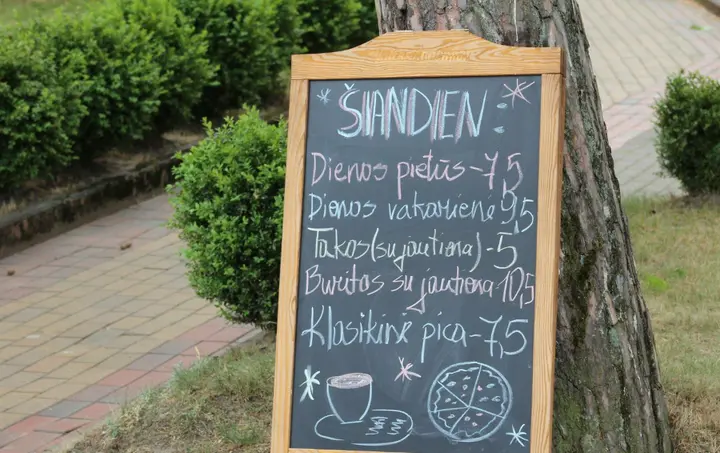 ŠIANDIEN
Dienos pietūs-7,5
Dienos vakarienė 9,5
Takos (su jautiena)-5,
Buritas su jautiena-10,5
Klasikinė pica-7,5